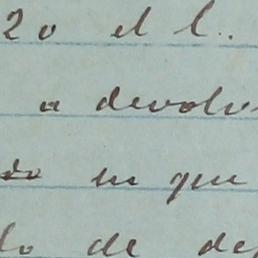 20 el l..
a devolv
do en que
lo de de